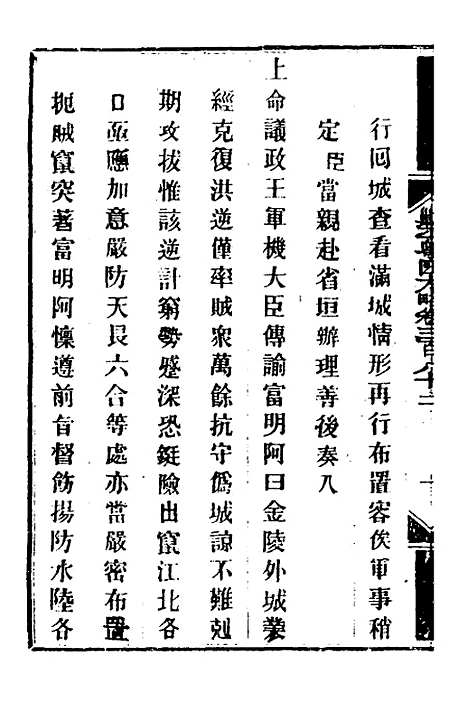 行回城查看滿城情形再行布置容俟軍事稍
定臣當親赴省垣辦理善後奏入
上命議政王軍機大臣傳諭富明阿曰金陵外城業
經克復洪逆僅率賊眾萬餘抗守僞城諒不難剋
期攻拔惟該逆計窮勢蹙深恐鋌險出竄江北各
口亟應加意嚴防天長六合等處亦當嚴密布置
扼賊竄突著富明阿懍遵前旨督飭揚防水陸各